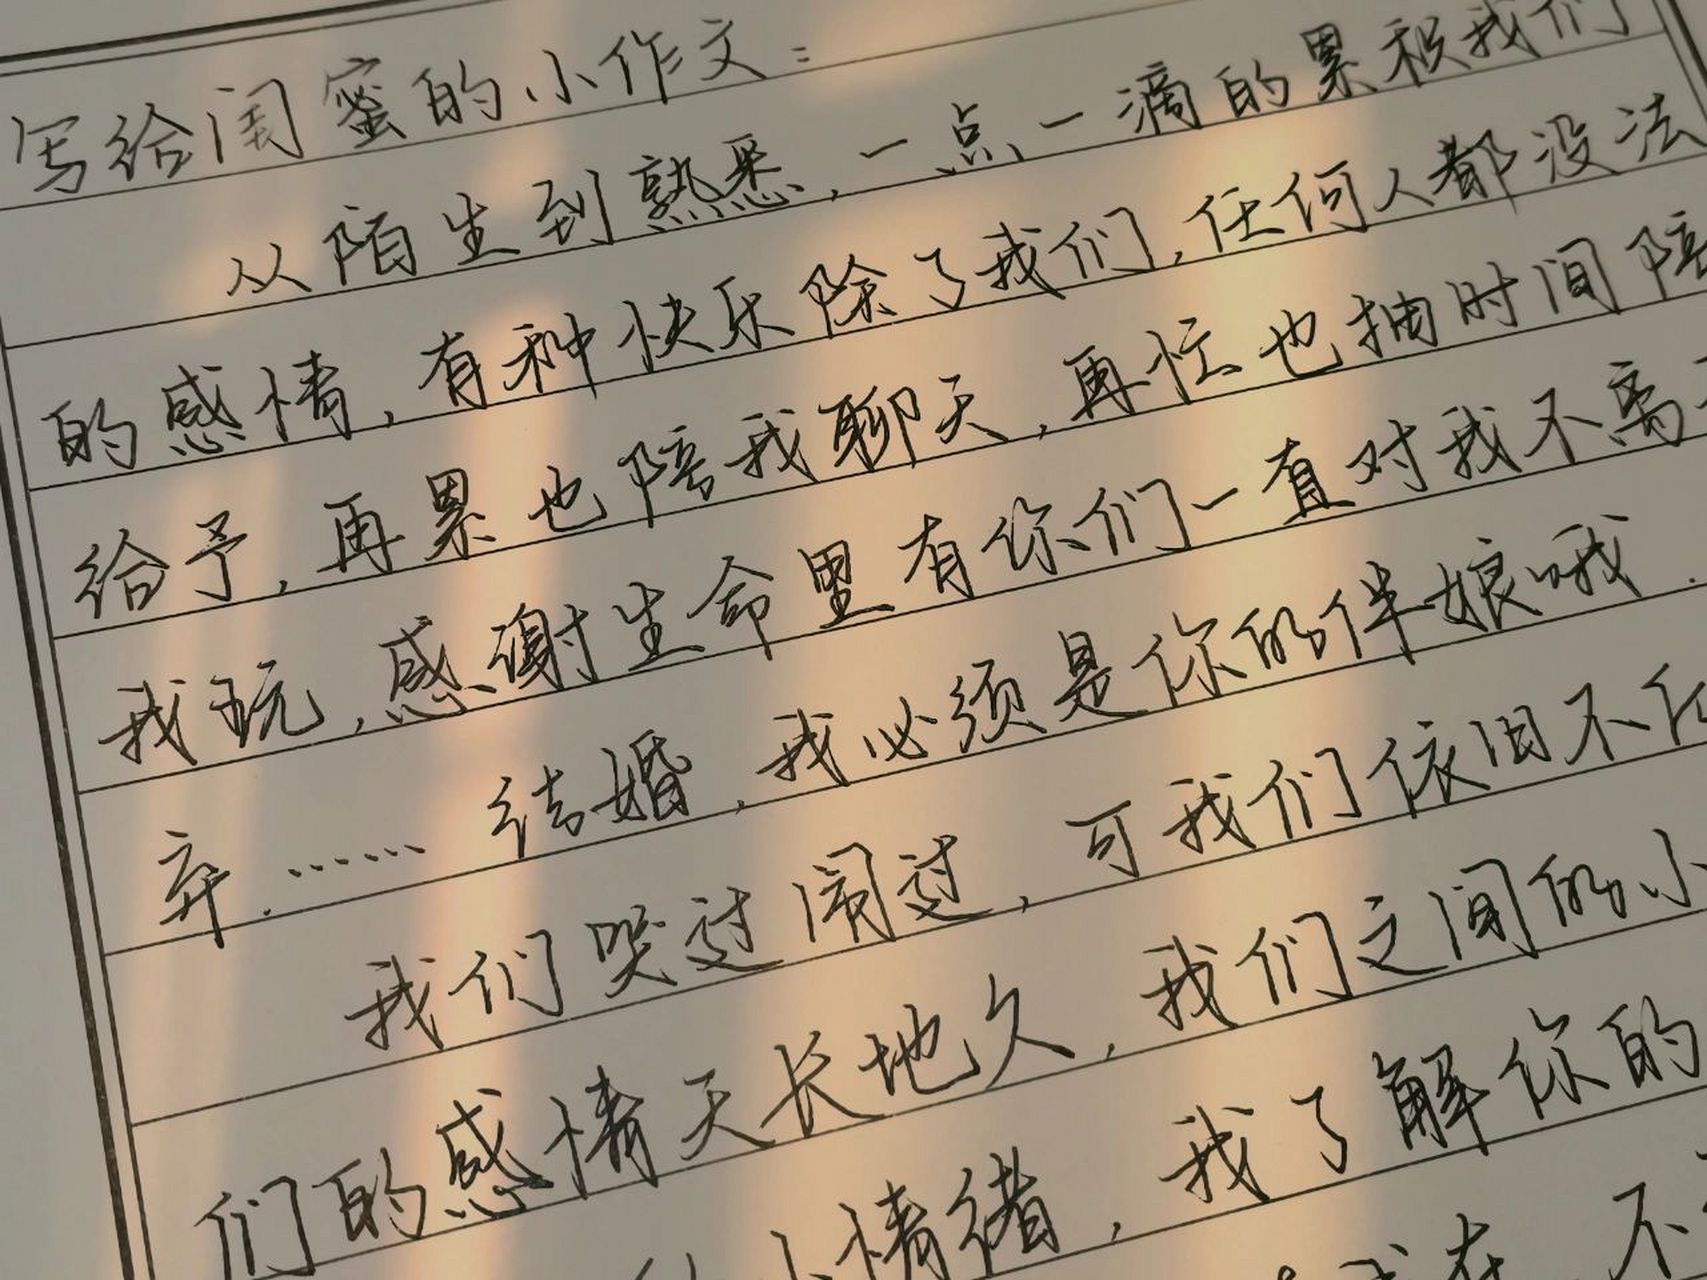 写给闺蜜的小作文:
从陌生到熟悉,一点一滴的累积我们
的感情,有种快乐除了我们,任何人都没法
给予,再累也陪我聊天,再忙也抽时间陪
我玩,感谢生命里有你们一直对我不离
弃......结婚,我必须是你的伴娘哦.
我们哭过闹过,可我们依旧不
们的感情天长地久,我们之间的小
小情绪,我了解你的
我在 不